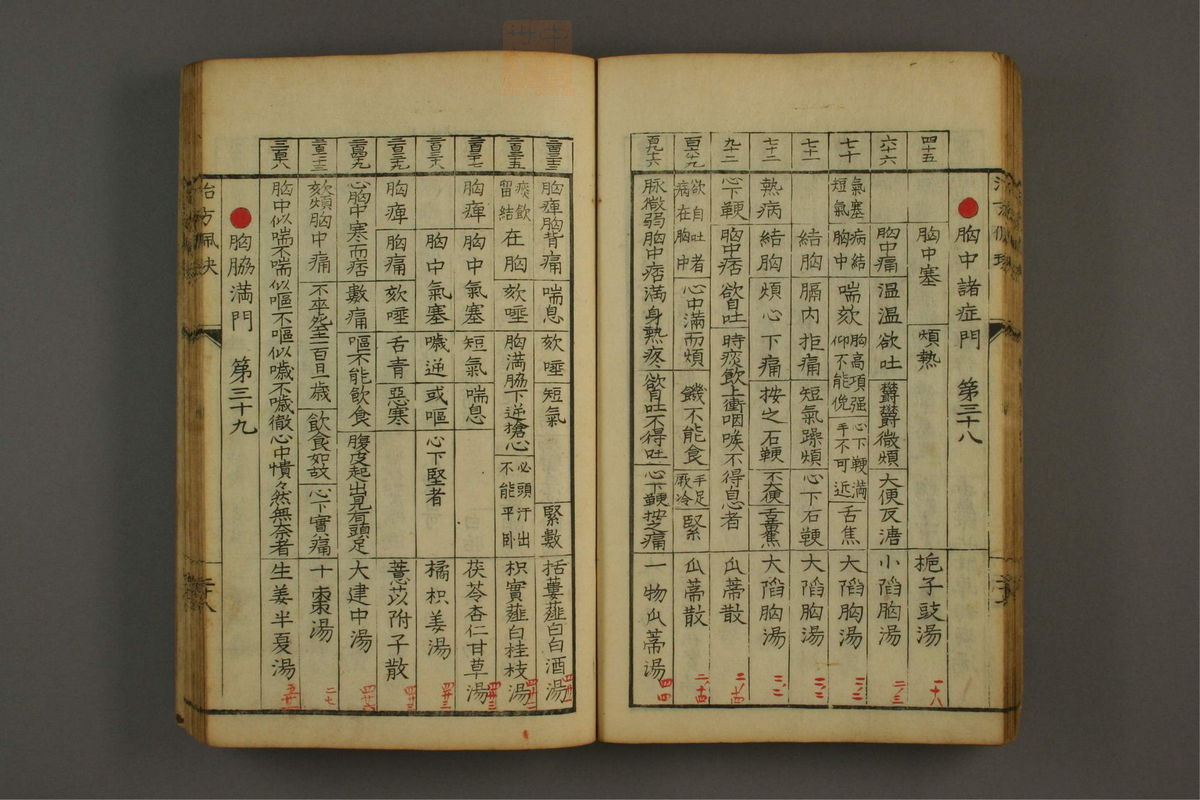 胸中諸症門 第三十八
四十五 胸中塞 煩熱 梔子豉湯 一ノ六
六十六 胸中痛 温温欲吐 欝欝微煩 大便反溏 小陷胸湯 二ノ三
七十 氣塞短氣 病結胸中 喘欬 胸高項强仰不能俛 心下鞕満手不可近 舌焦 大陷胸湯 三ノ二
七十一 結胸 膈内拒痛 短氣躁煩 心下石鞕 大陷胸湯 三ノ二
七十二 熱病 結胸 煩 心下痛 按之石鞕 不大便 舌燥 大陷胸湯 三ノ二
九十二 心下鞕 胸中痞 欲自吐 時痰飲上衝咽喉不得息者 瓜蔕散
欲自吐者病在胸中 心中満而煩 饑不能食 手足厥冷 緊 瓜蔕散
脉微弱胸中痞満 身熱疼 欲吐不得吐 心下鞕按之痛 一物瓜蔕湯
胸痺胸背痛 喘息 欬唾 短氣 緊數 括蔞薤白白酒湯
痰飲留結 在胸 欬唾 胸満脇下逆搶心 必頭汗出不能平臥 枳實薤白桂枝湯
胸痺 胸中氣塞 短氣 喘息 茯苓杏仁甘草湯
胸中氣塞 噦逆 或嘔 心下堅者 橘枳姜湯
胸痺 胸痛 欬唾 舌青 惡寒 薏苡附子散
心胸中寒而痞 數痛 嘔不能飲食 腹皮起出見有頭足 大建中湯
欬煩胸中痛 不卒死至一百日一歳 飲食如故 心下實痛 十棗湯
胸中似喘不喘似嘔不嘔似噦不噦徹心中憒々然無奈者 生姜半夏湯
胸脇満門 第三十九
治方佩決